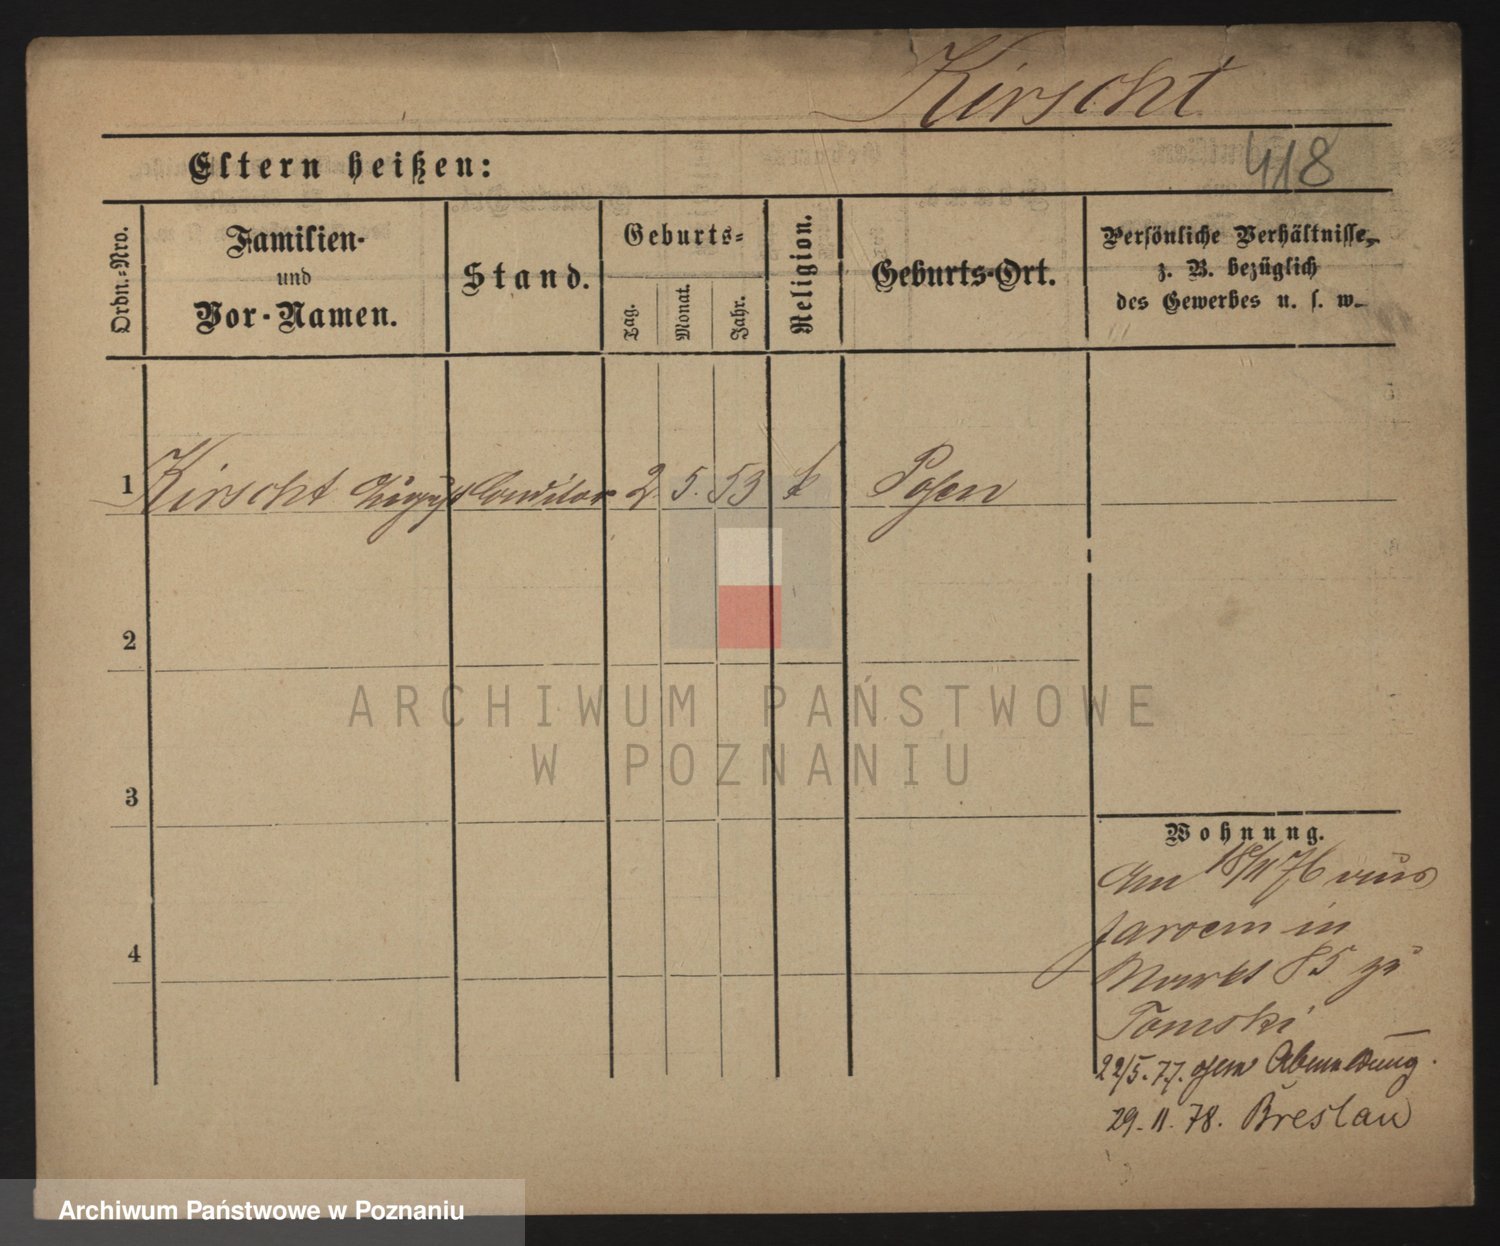 Kirscht
418
Eltern heißen:
Ordn.-Nro.
Familien-
und
Vor-Namen.
Stand.
Geburts-
Tag.
Monat.
Jahr.
Religion.
Geburts-Ort.
Persönliche Verhältnisse,
z. B. bezüglich
des Gewerbes u. s. w.
1 Kirscht August Conditor 2. 5. 53 k Posen
2
3
4
Wohnung.
Am 18/11 76 aus
Jarocin in
Markt 85 zu
Tomski
22/5. 77. ohne Abmeldung.
29. 11. 78. Breslau
ARCHIWUM PAŃSTWOWE
W POZNANIU
Archiwum Państwowe w Poznaniu